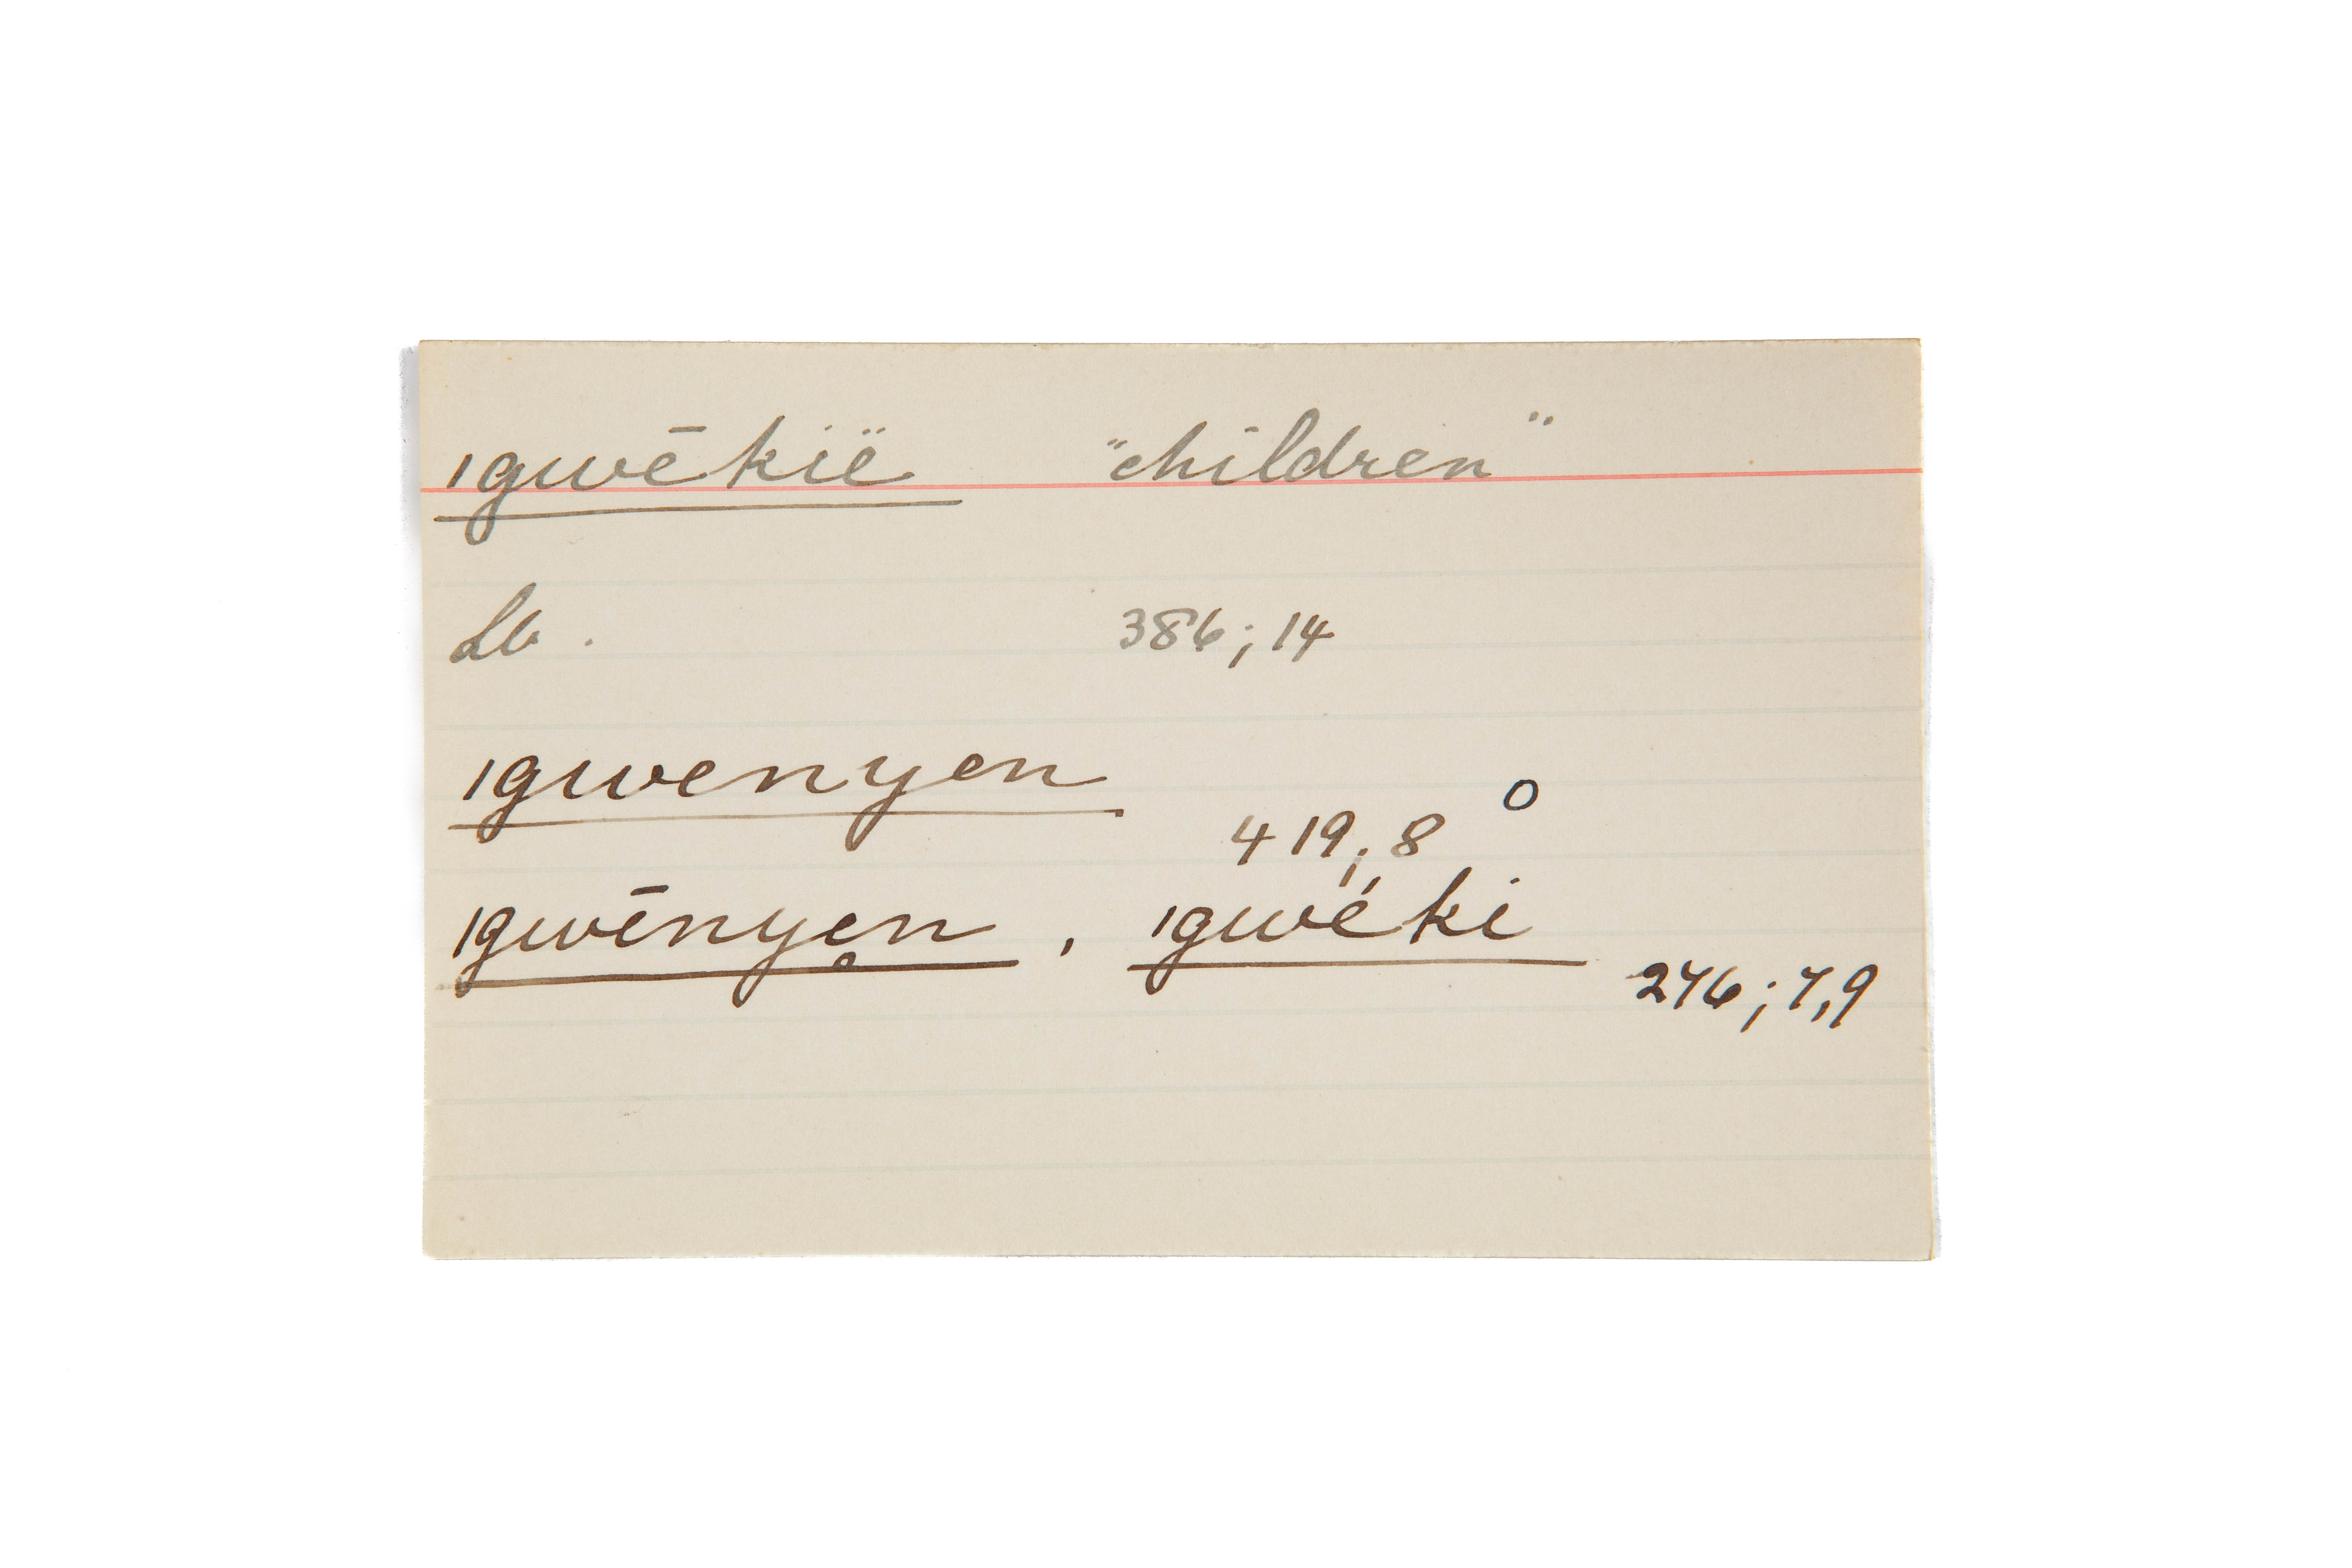 ıgwēkïë "children"
Lb. 386; 14
ıgwenyen
419; 8 o
ıgwēnyen, ıgwéki
276; 7,9